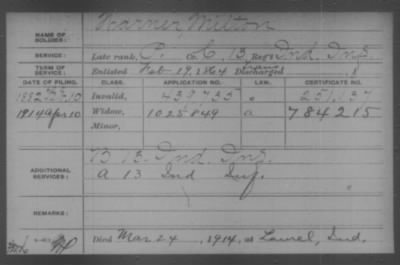 Warner Milton
NAME OF SOLDIER:
SERVICE: Late rank, P. Co. C, 13 Reg't Ind. Inf.
TERM OF SERVICE: Enlisted Feb 19, 1864 Discharged , 1
DATE OF FILING. CLASS. APPLICATION NO. LAW. CERTIFICATE NO.
Invalid,
1914 Apr 10 Widow, 1025849 a 784215
Minor,
B 13. Ind. Inf.
ADDITIONAL SERVICES: A 13 Ind Inf.
REMARKS:
Died Mar 24, 1914, at Laurel, Ind.